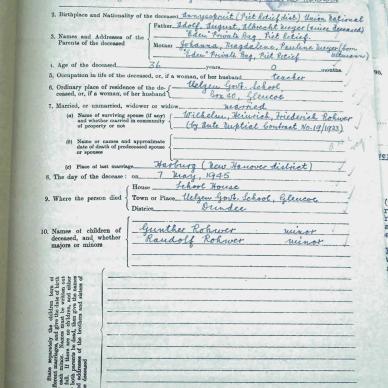 2. Birthplace and Nationality of the deceased Langverspruit (Piet Relief dist) Union National
3. Names and Addresses of the Parents of the deceased
Father Adolf, August, Albrecht Meyer (since deceased)
"Eden" Private Bag, Piet Relief.
Mother Johanna, Magdalena, Pauline Meyer (born
"Eden" Private Bag, Piet Relief
4. Age of the deceased 36 years 0 months
5. Occupation in life of the deceased, or, if a woman, of her husband teacher
6. Ordinary place of residence of the deceased, or, if a woman, of her husband Uelzen Govt. School,
Box 40, Glencoe
7. Married, or unmarried, widower or widow married
(a) Name of surviving spouse (if any) and whether married in community of property or not Wilhelm, Heinrich, Friedrich Rohwer
(by Ante Nuptial Contract No. 19/1933)
(b) Name or names and approximate date of death of predeceased spouse or spouses
(c) Place of last marriage Harburg (New Hanover district)
8. The day of the decease: on 7 May, 1945
9. Where the person died
House School House
Town or Place Uelzen Govt. School, Glencoe
District Dundee
10. Names of children of deceased, and whether majors or minors
Gunther Rohwer minor
Randolf Rohwer minor
State separately the children born of
different marriages, and give the date of birth
of each minor. Names must be written out
in full. If there are no children, and either
or both parents be dead, then give the names
and addresses of the brothers and sisters of
the deceased